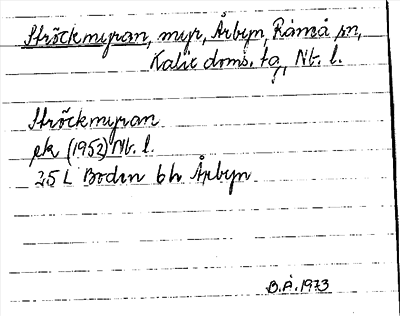 Ströckmyran, myr, Årbyn, Råneå sn,
Kalix doms. tg, Nb. l.
Ströckmyran
ek (1952) Nb. l.
25 L Boden bh Årbyn
B.Å. 1973